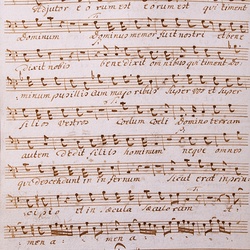 Adjutor eorum est eorum est qui timent
Dominum Dominus memor fuit nostri et bene
dixit nobis benedixit omnibus qui timent Do
minum pusillis cum majoribus super vos et super
filios vestros Coelum Coeli Domino terram
autem dedit filiis hominum neque omnes
qui descendunt in infernum Sicut erat in prin
cipio et in saecula saeculorum A
men a men a